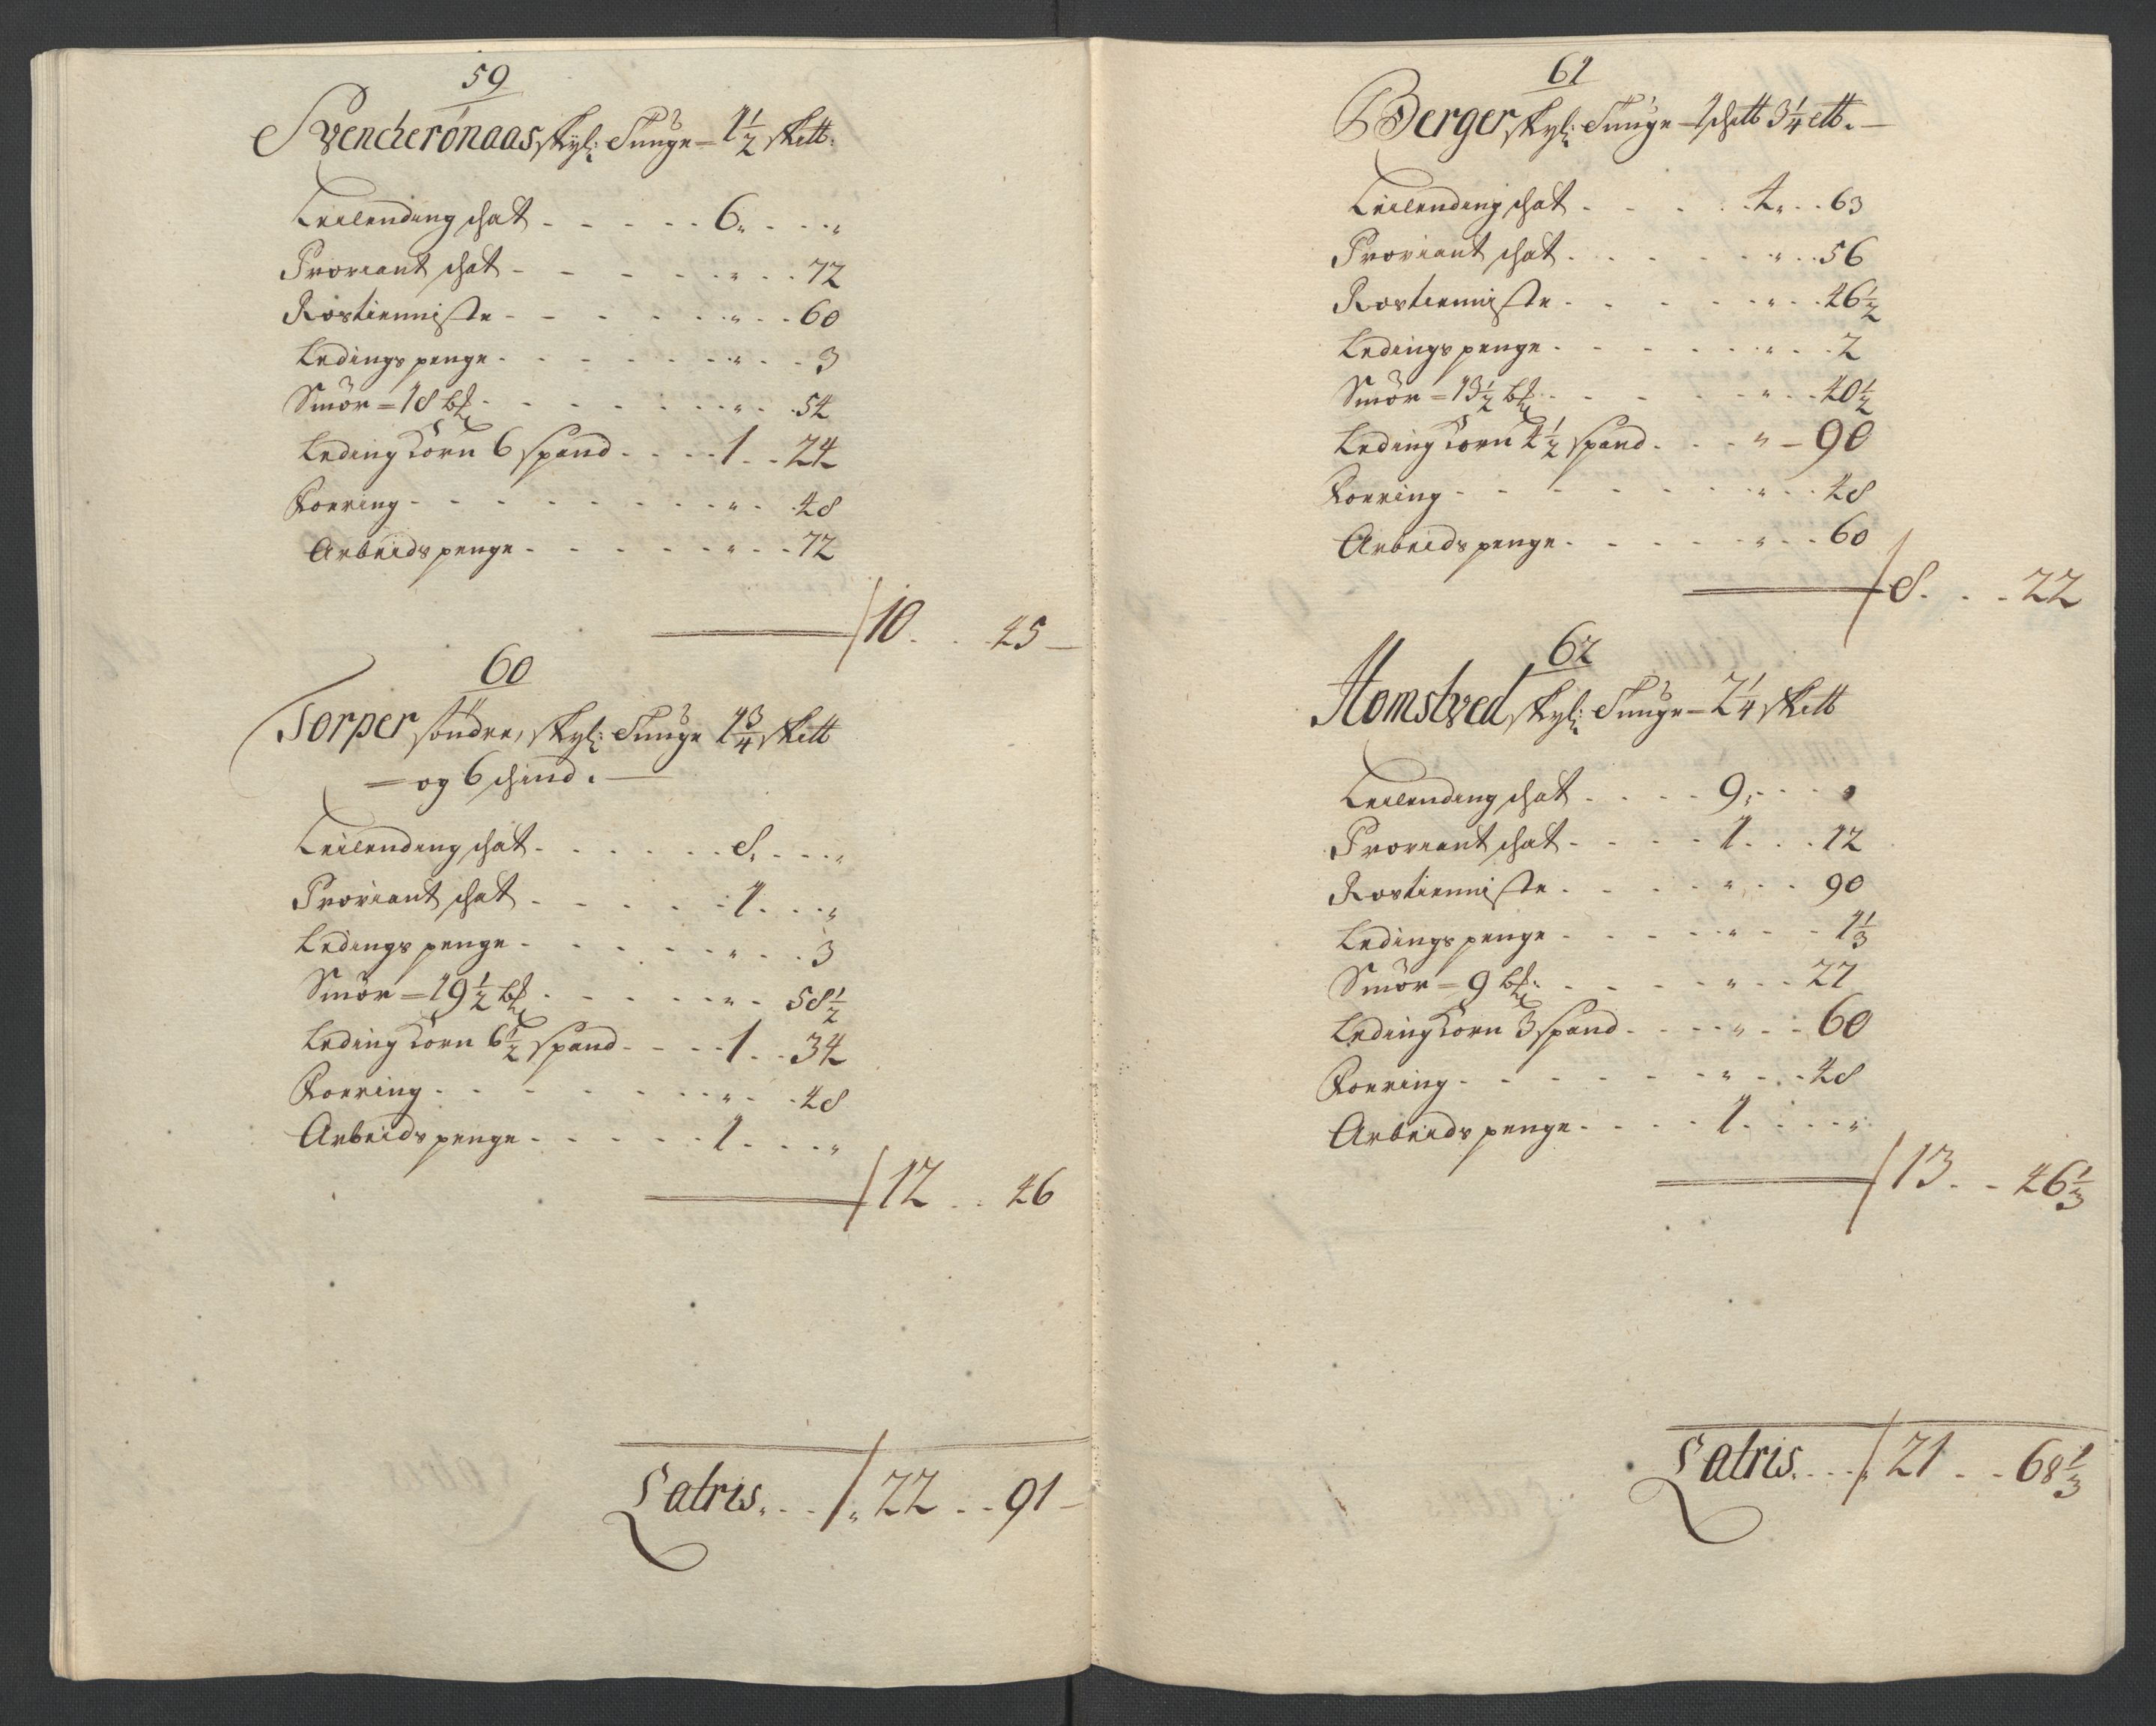 59
Svencherønaas skyl: Tunge = 1 1/2 skett:
Leilending schat - - - - - 6 „ - - - „
Proviant schat - - - - - „ - - 72
Rostienniste - - - - - „ - - 60
Ledings penge - - - - - „ - - 3
Smör = 18 b℔ - - - - - „ - - 54
Leding Korn 6 spand - - - 1 - - 24
Foering - - - - - „ - - 48
Arbeids penge - - - - - „ - - 72
/10 - - 45 —
60
Torper söndre, skyl: Tunge 1 3/4 skett
= og 6 schind. —
Leilending schat - - - - - 8 „ - - - „
Proviant schat - - - - - 1 - - - „
Ledings penge - - - - - „ - - 3
Smör = 19 1/2 b℔ - - - - - „ - - 58 1/2
Leding Korn 6 1/2 spand - - - 1 - - 34
Foering - - - - - „ - - 48
Arbeids penge - - - - - 1 - - - „
/12 - - 46
Latris - - - /„ 22 - - 91 —
61
Berger skyl: Tunge — 1 schett 3 1/4 ett. —
Leilending schat - - - - 4 „ - - 63
Proviant schat - - - - - „ - - 56
Rostienniste - - - - - „ - - 46 1/2
Ledings penge - - - - - „ - - 2
Smör = 13 1/2 b℔ - - - - - „ - - 40 1/2
Leding Korn 4 1/2 spand - - - „ — 90
Foering - - - - - „ - - 48
Arbeids penge - - - - - „ - - 60
/8 - - - 22
62
Homstved skyl: Tunge = 2 1/4 skett
Leilending schat - - - - 9 „ - - - „
Proviant schat - - - - 1 - - - 12
Rostienniste - - - - „ - - 90
Ledings penge - - - - - „ - - 1 1/3
Smör = 9 b℔ - - - - - „ - - 27
Leding Korn 3 spand - - - - „ - - 60
Foering - - - - - „ - - 48
Arbeids penge - - - - 1 - - - „
/13 - - 46 1/3
Latris - - - /„ 21 - - 68 1/3